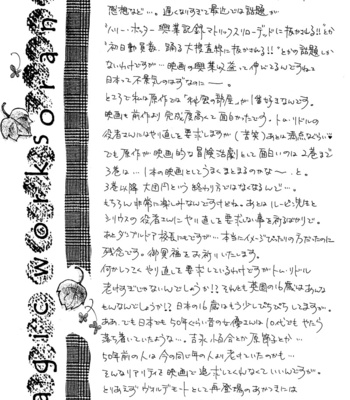 感想など…。遅くなりすぎて最近では話題が
"ハリー・ポッター興業記録マトリックスリローデッドに抜かれる!!"とか
"初日動員数、踊る大捜査線に抜かれる!!"とかの話題しか
ないわけですが…映画の興業収益って伸びてるんですねェ
日本って不景気のはずなのに〜。
ところで私は原作では「秘密の部屋」が1番好きなんです。
映画も前作より完成度高くて面白かったです。トム・リドルの
役者さんにはやり直しを要求しますが(苦笑)あとは満点なくらい
でも原作が映画的な冒険活劇として面白いのは2巻まで
3巻は…1本の映画としてうまくまとまるのかな〜。と。
3巻以降 大団円という終わり方ではなくなるんで…。
もちろん非常に楽しみなんですけどね。あとはルーピン先生と
シリウスの役者さんにやり直しを要求しない事を祈るばかりで。
あとダンブルドア校長にもですが…本当にイメージぴったりの方だったのに
残念です。御冥福をお祈りいたします。
何かしつこくやり直しを要求しているわけですがトム・リドル
老けすぎじゃないんでしょうか!?それとも英国の16歳はあんな
もんなんでしょうか!?日本の16歳はもう少しぴちぴちしてますが。
ああ、でも日本でも50年ぐらい昔の女優さんは10代でもやたら
落ち着いていたような…。吉永小百合とか原節子とか…
50年前の人は今の同じ年の人より老けていたのかも…
そんなリアリティを映画で追求してくれなくていいんですが。
とりあえずヴォルデモートとして再登場のあかつきには
agic W@rks oran